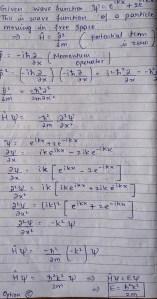 Given wave function ψ = e^{ikx} + 2e^{-ikx}
This is wave function of a particle
moving in free space
⇒ Ĥ = p̂²/2m (potential term is zero)
p̂ = -iħ ∂/∂x (Momentum operator)
p̂² = (-iħ ∂/∂x)(-iħ ∂/∂x)
p̂²/2m = -ħ²/2m ∂²/∂x²
Ĥψ = -ħ²/2m ∂²ψ/∂x²
ψ = e^{ikx} + 2e^{-ikx}
∂ψ/∂x = ik e^{ikx} - 2ik e^{-ikx}
∂ψ/∂x = ik [e^{ikx} - 2e^{-ikx}]
∂²ψ/∂x² = ik [ik e^{ikx} + 2ik e^{-ikx}]
∂²ψ/∂x² = [ik]² [e^{ikx} + 2e^{-ikx}]
∂²ψ/∂x² = -k²ψ
Ĥψ = -ħ²/2m (-k²) ψ
Ĥψ = ħ²k²/2m ψ ⇒ Hψ = Eψ
⇒ E = ħ²k²/2m
Option